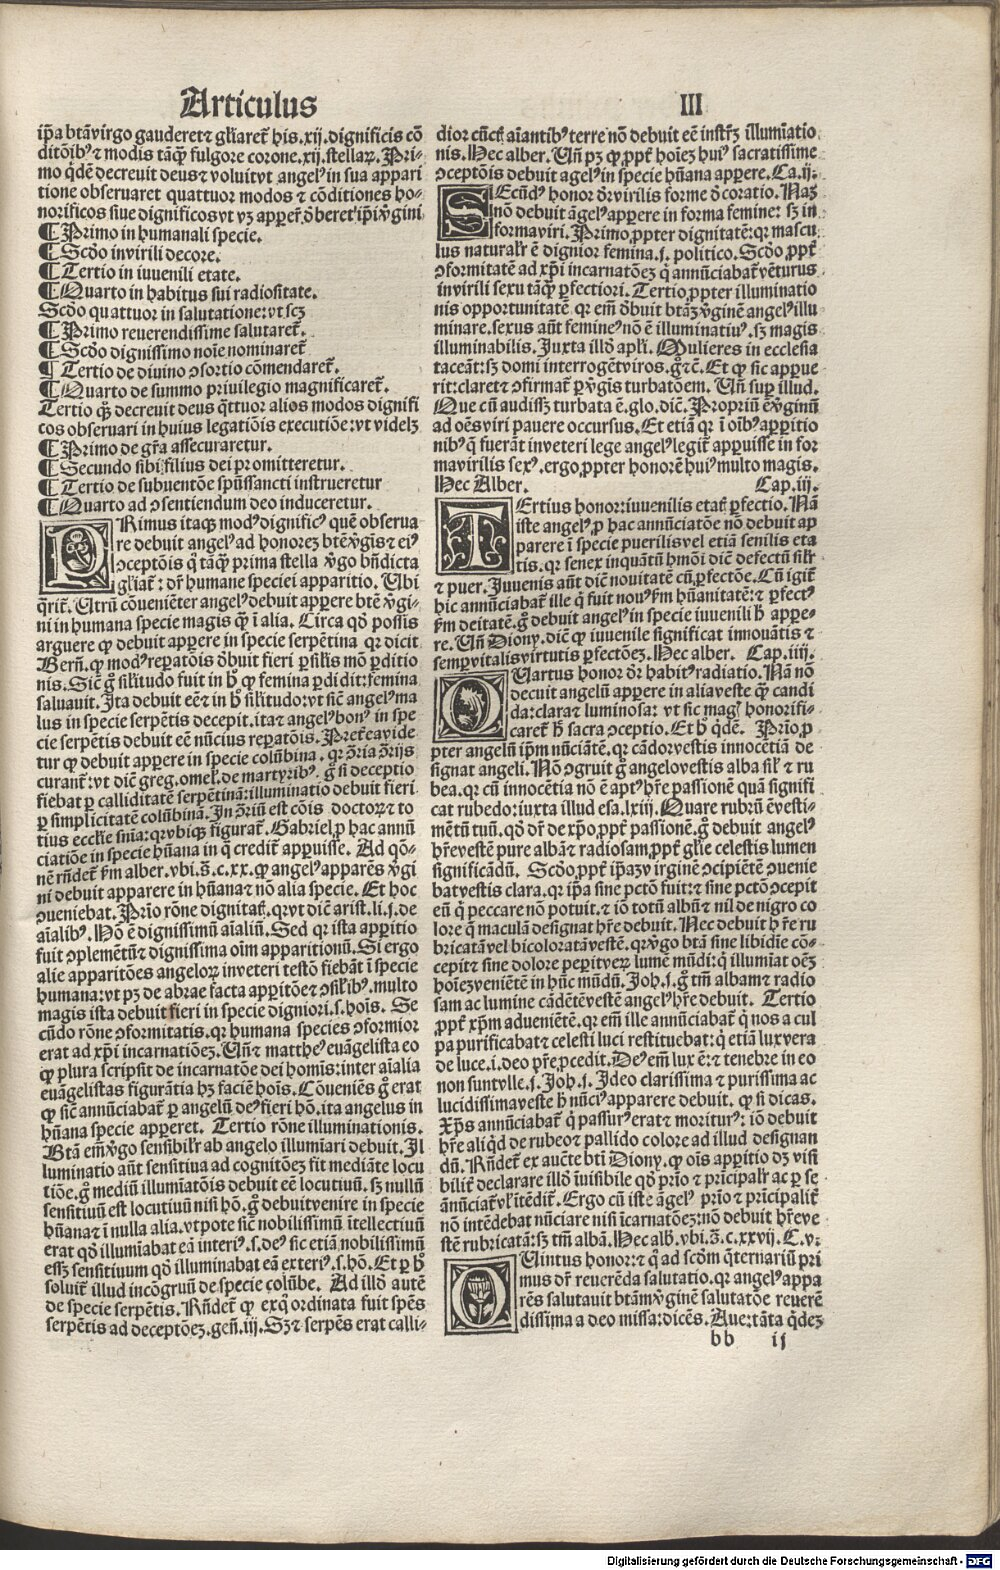 Articulus III
ip̄a btā virgo gauderet ⁊ gl̄iaret̄ his .xij. dignificis cō
ditōibꝰ ⁊ modis tāqꝫ fulgore corone .xij. stellaꝝ. Pri-
mo qͥdē decreuit deus ⁊ voluit vt angelꝰ in sua appari
tione obseruaret quattuor modos ⁊ cōditiones ho-
norificos siue dignificos vt
¶ Primo in humanali specie.
¶ Scďo in virili decore.
¶ Tertio in iuuenili etate.
¶ Quarto in habitus sui radiositate.
Scďo quattuor in salutatione: vt scꝫ
¶ Primo reuerendissime salutaret̄.
¶ Scďo dignissimo noīe nominaret̄
¶ Tertio de diuino ɔsortio cōmendaret̄.
¶ Quarto de summo priuilegio magnificaret̄.
Tertio decreuit deus qͣttuor alios modos dignifi
cos obseruari in huius legatiōis executiōe: vt videlꝫ
¶ Primo de gr̄a assecuraretur.
¶ Secundo sibi filius dei promitteretur.
¶ Tertio de subuentōe sp̄ussancti instrueretur
¶ Quarto ad ɔsentiendum deo induceretur.
PRimus itaqꝫ modꝰ dignificꝰ quē obserua
re debuit angelꝰ ad honorez btē v̄gīs ⁊ eiꝰ
ɔceptōis qͥ tāqꝫ prima stella v̄go bn̄dicta
gl̄iat̄: dr̄ humane speciei apparitio. Ubi
q̄rit̄. Utrū cōueniēter angelꝰ debuit apꝑere btē v̄gi-
ni in humana specie magis qꝫ ī alia. Circa qďo possis
arguere ꝙ debuit apꝑere in specie serpētina qꝛ dicit
Bern̄. ꝙ modꝰ reꝑatōis ďbuit fieri ꝑ sil̄is mō ꝑditio
nis. Sic̄ ḡ sil̄itudo fuit in hͦ ꝙ femina ꝑdidit: femina
saluauit. Ita debuit eē ⁊ in hͦ sil̄itudo: vt sic̄ angelꝰ ma
lus in specie serpētis decepit. ita ⁊ angelꝰ bonꝰ in spe
cie serpētis debuit eē nūcius reꝑatōis. Preterea vide
tur ꝙ debuit apꝑere in specie colūbina. qꝛ ɔ̄ria ɔ̄rijs
curant̄: vt dic̄ greg. omel. de martyribꝰ. ḡ si deceptio
fiebat ꝑ calliditatē serpētinā: illuminatio debuit fieri
ꝑ simplicitatē colūbinā. In ɔ̄riū est cōis doctoꝝ ⁊ to
tius eccl̄ie sn̄ia: qꝛ vbiqꝫ figurat̄. Gabriel ꝓ hac annū
ciatiōe in specie hūana in qͣ credit̄ apꝑuisse. Ad qō-
nē rn̄det̄ ẜm alber. vbi.s̄.c.xx. ꝙ angelꝰ apꝑarēs v̄gi
ni debuit apparere in hūana ⁊ nō alia specie. Et hoc
ɔueniebat. Prīo rōne dignitat̄. qꝛ vt dic̄ arist. li.j. de
aīalibꝰ. Hō ē dignissimū aīaliū. Sed qꝛ ista apꝑitio
fuit ɔplemētū ⁊ dignissima oīm apparitionū. Si ergo
alie apparitōes angeloꝝ in veteri testō fiebāt ī specie
humana: vt pꝫ de abrae facta apꝑitōe ⁊ ɔsil̄ibꝰ. multo
magis ista debuit fieri in specie digniori.s. hoīs. Se
cūdo rōne ɔformitatis. qꝛ humana species ɔformior
erat ad xp̄i incarnatiōez. Un̄ ⁊ mattheꝰ euāgelista eo
ꝙ plura scripsit de incarnatōe dei homīs: inter aīalia
euāgelistas figurātia hꝫ faciē hoīs. Cōueniēs ḡ erat
ꝙ sic̄ annūciabat̄ ꝑ angelū deꝰ fieri hō. ita angelus in
hūana specie apꝑeret. Tertio rōne illuminationis.
Btā em̄ v̄go sensibilr̄ ab angelo illumīari debuit. Il
luminatio aūt sensitiua ad cognitōez fit mediāte locu
tiōe. ḡ mediū illumīatōis debuit eē locutiuū. sꝫ nullū
sensitiuū est locutiuū nisi hō. ḡ debuit venire in specie
hūana ⁊ ī nulla alia. vtpote sic̄ nobilissimū ītellectiuū
erat qďo illumīabat eā interiꝰ.s. deꝰ sic etiā nobilissimū
essꝫ sensitiuum qďo illuminabat eā exteriꝰ.s. hō. Et ꝑ hͦ
soluit̄ illud incōgruū de specie colūbe. Ad illďo autē
de specie serpētis. Rn̄det̄ ꝙ ex qͦ ordinata fuit sp̄ēs
serpētis ad deceptōez. gen̄.iij. Sꝫ ⁊ serpēs erat calli-
dior cūct̄ aīantibꝰ terre nō debuit eē illumīatio
nis. Hec alber. Un̄ pꝫ ꝙ ꝓpt̄ hoīez huiꝰ sacratissime
ɔceptōis debuit āgelꝰ in specie hūana apꝑere. Ca.ij.
SEcūdꝰ honor dr̄ virilis forme ďcoratio. Naꝫ
nō debuit āgelꝰ apꝑere in forma femine: sꝫ in
forma viri. Primo ꝓpter dignitatē: qꝛ mascu
lus naturalr̄ ē dignior femina.j. politico. Scďo ꝓpt̄
ɔformitatē ad xp̄i incarnatōez qͥ annūciabat̄ vēturus
in virili sexu tāqꝫ ꝑfectiori. Tertio ꝓpter illuminatio
nis opportunitatē qꝛ em̄ ďbuit btāꝫ v̄ginē angelꝰ illu
minare. sexus aūt femineꝰ nō ē illuminatiuꝰ. sꝫ magis
illuminabilis. Juxta illďo apl̄i. Mulieres in ecclesia
taceāt: sꝫ domi interrogēt viros. ḡ ⁊c̄. Et ꝙ sic apꝑue
rit: claret ⁊ ɔfirmat̄ ꝑ v̄gis turbatōem. Un̄ suꝑ illud.
Que cū audissꝫ turbata ē. glo. dic̄. Propriū ē v̄ginū
ad oēs viri pauere occursus. Et etiā qꝛ ī oībꝰ apꝑitio
nibꝰ q̄ fuerāt in veteri lege angelꝰ legit̄ apꝑuisse in for
ma virilis sexꝰ. ergo ꝓpter honorē huiꝰ multo magis.
Hec Alber. Cap.iij.
TErtius honor: iuuenilis etat̄ ꝑfectio. Nā
iste angelꝰ ꝓ hac annūciatōe nō debuit ap
parere ī specie puerilis vel etiā senilis eta
tis. qꝛ senex inquātū hmōi dic̄ defectū sil̄r
⁊ puer. Juuenis aūt dic̄ nouitatē cū ꝑfectōe. Cū igit̄
hic annūciabat̄ ille qͥ fuit nouꝰ ẜm hūanitatē: ⁊ ꝑfectꝰ
ẜm deitatē. ḡ debuit angelꝰ in specie iuuenili hͦ apꝑe-
re. Un̄ Diony. dic̄ ꝙ iuuenile significat innouātis ⁊
semꝑ vitalis virtutis ꝑfectōez. Hec alber. Cap.iiij.
QUartus honor dr̄ habitꝰ radiatio. Nā nō
decuit angelū apꝑere in alia veste qꝫ candi
da: clara ⁊ luminosa: vt sic magꝭ honorifi-
caret̄ hͦ sacra ɔceptio. Et hͦ qͥdē. Prīo ꝓ
pter angelū ip̄m nūciātē. qꝛ cādor vestis innocētiā de
signat angeli. Nō ɔgruit ḡ angelo vestis alba sil̄ ⁊ ru
bea. qꝛ cū innocētia nō ē aptꝰ hr̄e passionē quā signifi
cat rubedo: iuxta illud esa.lxiij. Quare rubrū ē vesti-
mētū tuū. qďo dr̄ de xp̄o ꝓpt̄ passionē. ḡ debuit angelꝰ
hr̄e vestē pure albā ⁊ radiosam ꝓpt̄ gl̄ie celestis lumen
significādū. Scďo ꝓpt̄ ip̄aꝫ virginē ɔcipiētē ɔuenie
bat vestis clara. qꝛ ip̄a sine pctō fuit: ⁊ sine pctō ɔcepit
eū qͥ peccare nō potuit. ⁊ iō totū albū ⁊ nil de nigro co
lore qͥ maculā designat hr̄e debuit. Nec debuit hr̄e ru
bricatā vel bicoloratā vestē. qꝛ v̄go btā sine libidīe cō-
cepit ⁊ sine dolore peꝑit veꝝ lumē mūdi: qͥ illumīat oēꝫ
hoīez veniētē in hūc mūdū. Joh.j. ḡ tm̄ albam ⁊ radio
sam ac lumine cādētē vestē angelꝰ hr̄e debuit. Tertio
ꝓpt̄ xp̄m adueniētē. qꝛ em̄ ille annūciabat̄ qͥ nos a cul
pa purificabat ⁊ celesti luci restituebat: qͥ etiā lux vera
de luce.i. deo pr̄e ꝓcedit. Deꝰ em̄ lux ē: ⁊ tenebre in eo
non sunt vlle.j. Joh.j. Ideo clarissima ⁊ purissima ac
lucidissima veste hͦ nūciꝰ apparere debuit. ꝙ si dicas.
Xp̄s annūciabat̄ qͥ passurꝰ erat ⁊ moriturꝰ: iō debuit
hr̄e aliqͥd de rubeo ⁊ pallido colore ad illud designan
dū. Rn̄det̄ ex auctē bt̄i Diony. ꝙ oīs apꝑitio dꝫ visi
bilit̄ declarare illďo īuisibile qďo prīo ⁊ prīcipalr̄ ac ꝑ se
ānūciat̄ vl̓ ītēdit̄. Ergo cū iste āgelꝰ prīo ⁊ prīcipalit̄
nō intēdebat nūciare nisi īcarnatōez: nō debuit hr̄e ve
stē rubricatā: sꝫ tm̄ albā. Hec alb. vbi.s̄.c.xxvij. C.v.
QUintus honor: ⁊ qͥ ad scďm qͣternariū pri
mus dr̄ reuerēda salutatio. qꝛ angelꝰ appa
rēs salutauit btām v̄ginē salutatōe reuerē
dissima a deo missa: dicēs. Aue: tāta qͥdeꝫ
bb ij
Digitalisierung gefördert durch die Deutsche Forschungsgemeinschaft - DFG